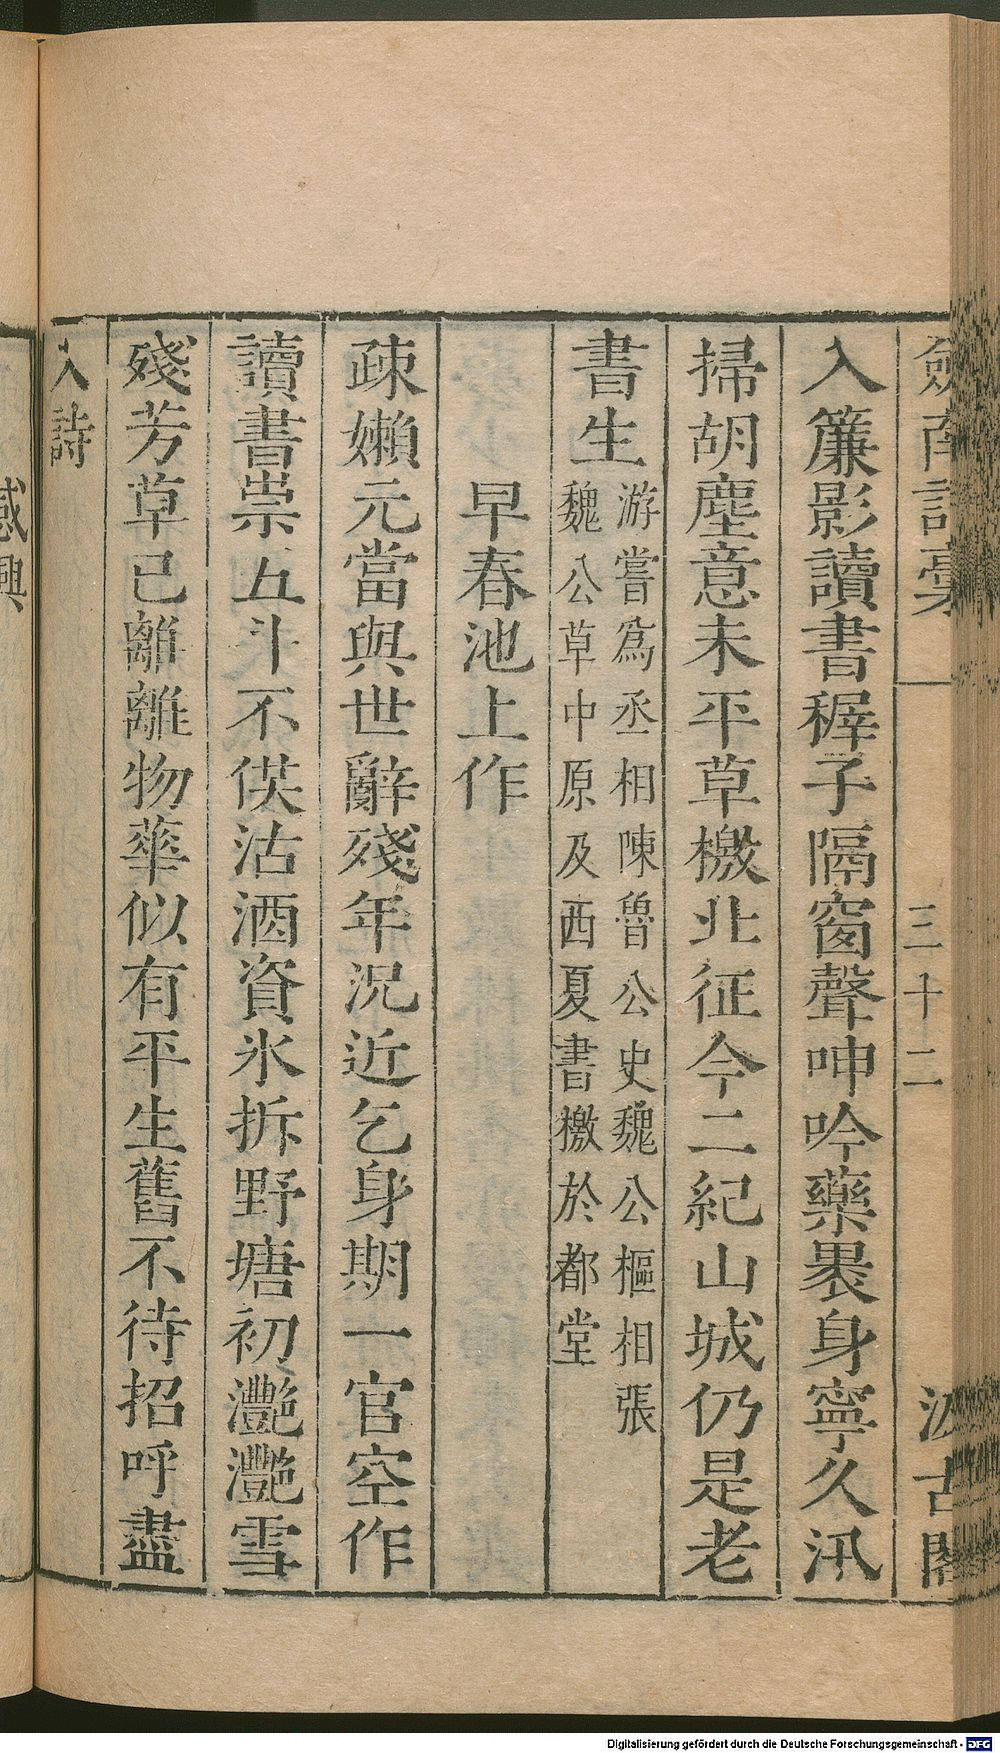 劍南詩藁 三十二 汲古閣
入簾影讀書穉子隔窗聲呻吟藥裹身寧久汛
掃胡塵意未平草檄北征今二紀山城仍是老
書生
游嘗爲丞相陳魯公史魏公樞相張
魏公草中原及西夏書檄於都堂
早春池上作
疎嬾元當與世辭殘年況近乞身期一官空作
讀書祟五斗不供沽酒資氷拆野塘初灔灔雪
殘芳草已離離物華似有平生舊不待招呼盡
入詩
感興
Digitalisierung gefördert durch die Deutsche Forschungsgemeinschaft - DFG